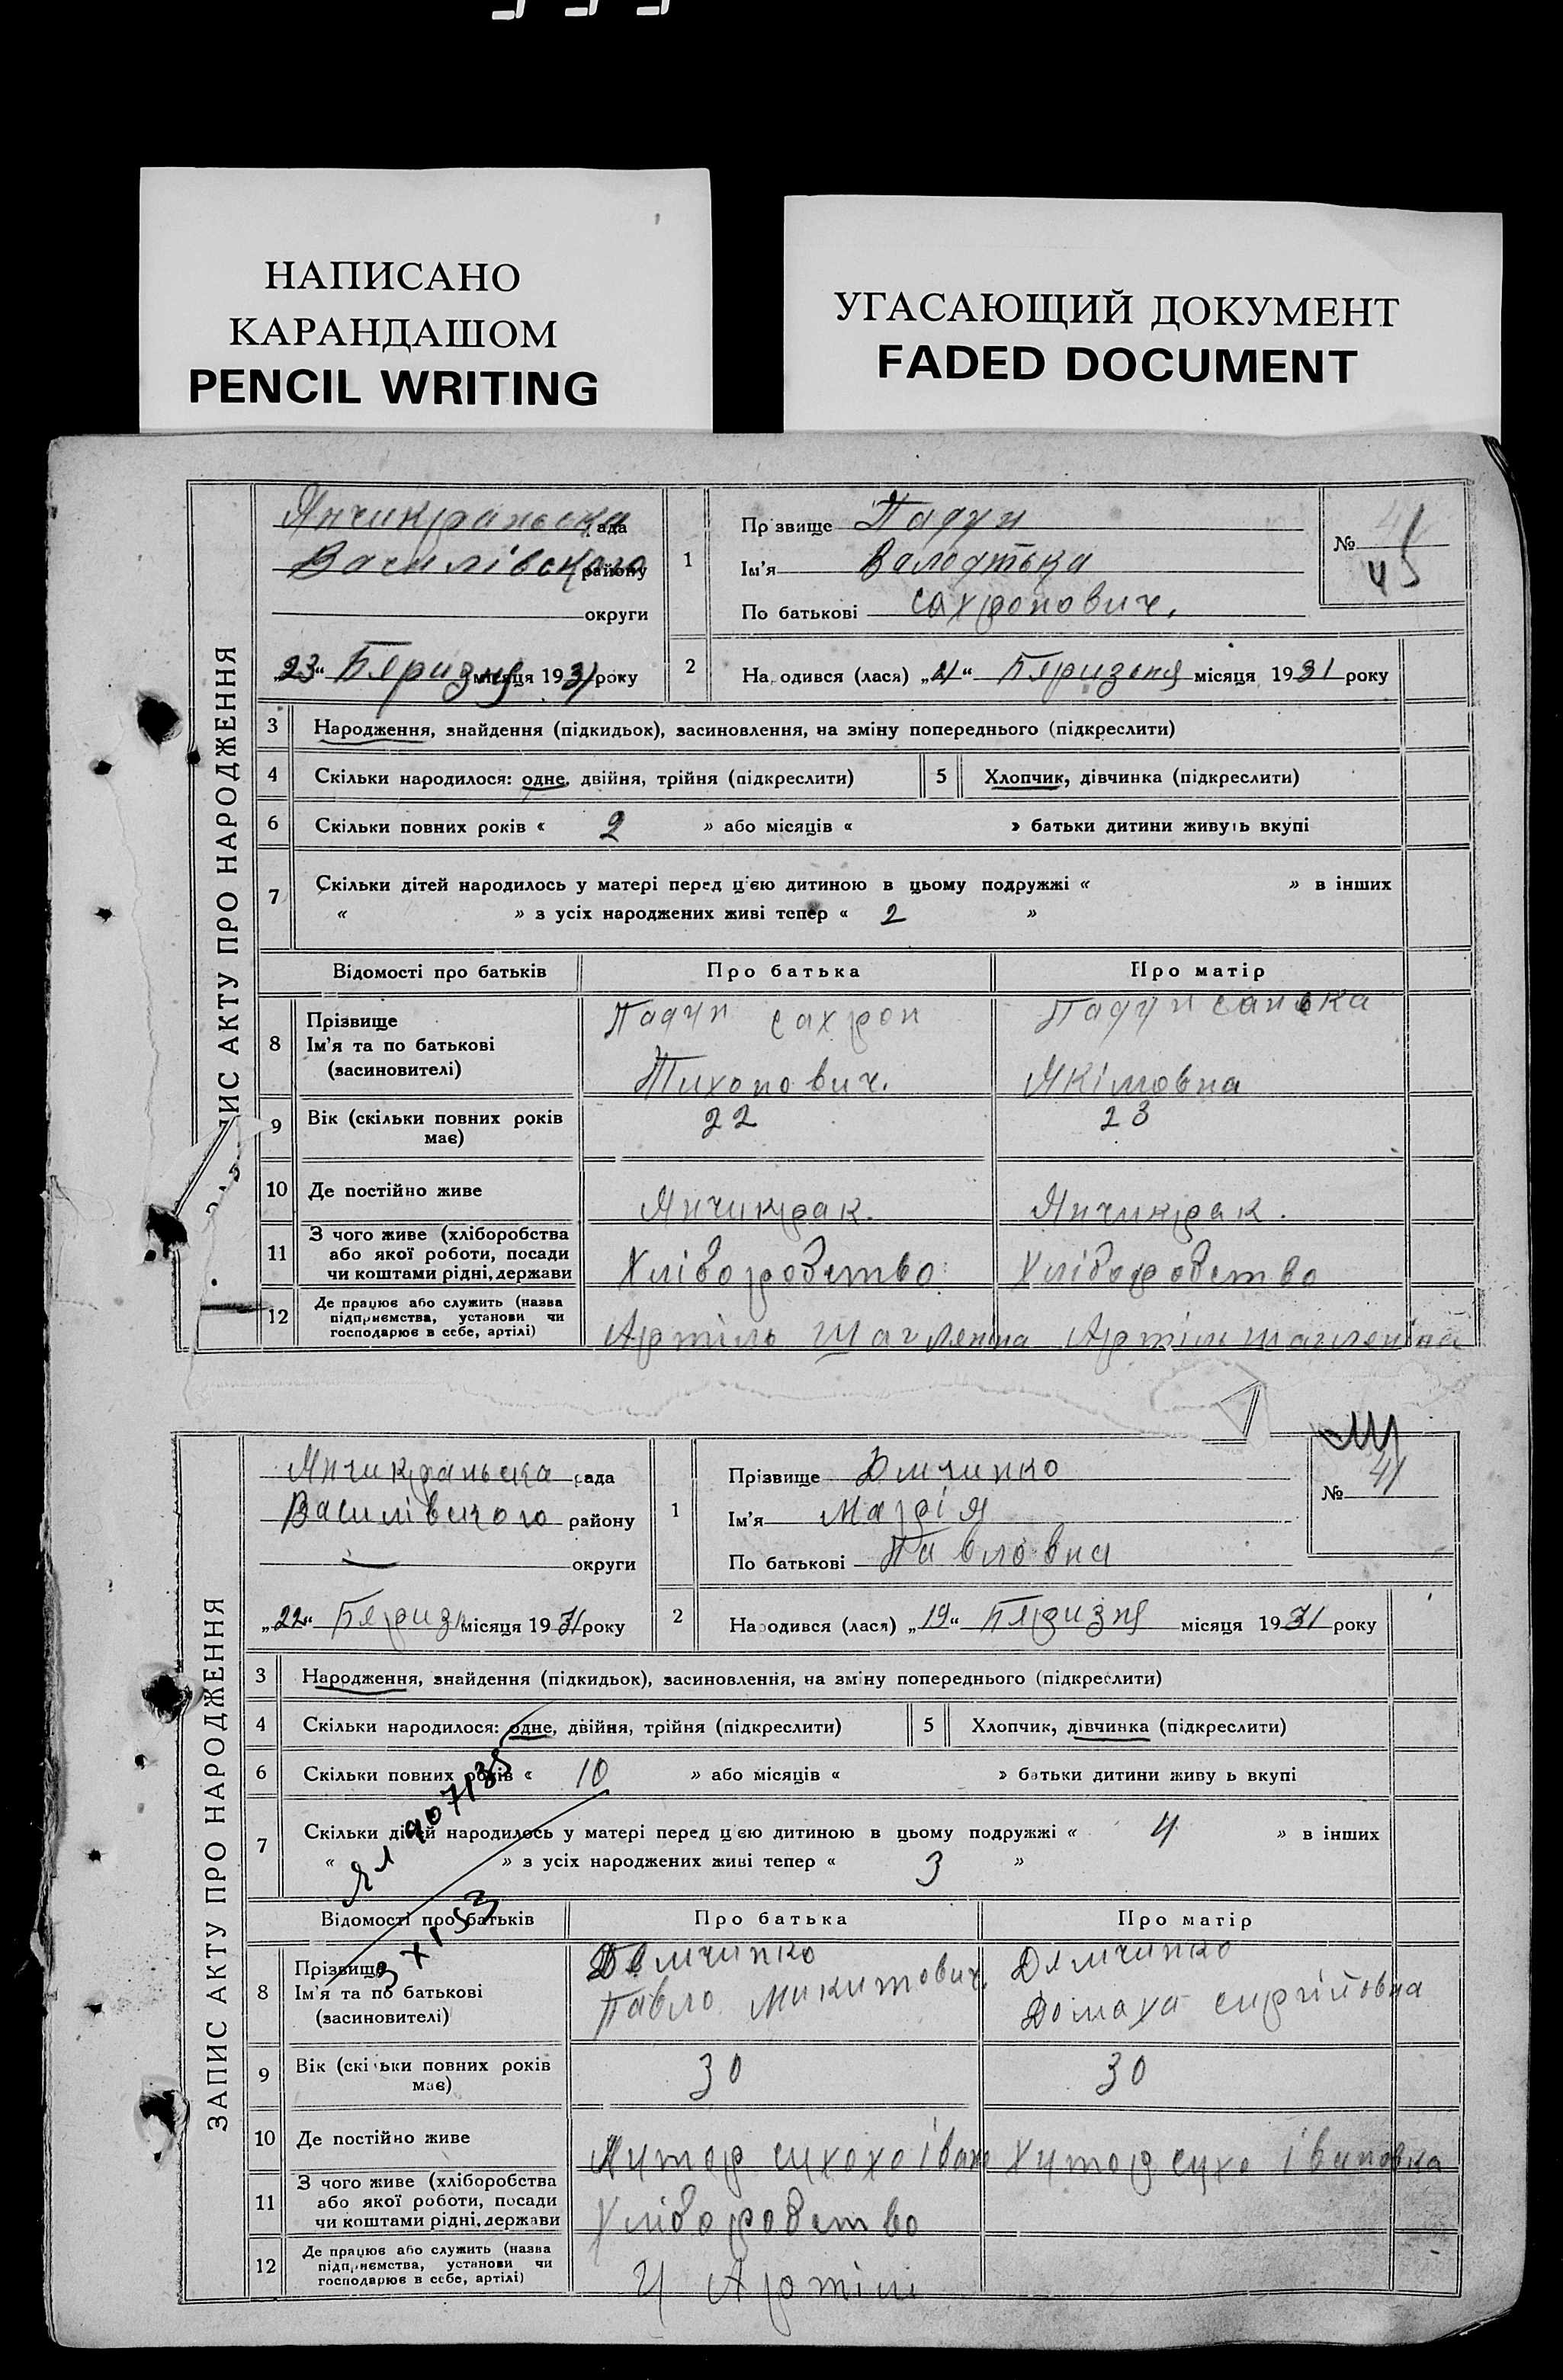 НАПИСАНО
КАРАНДАШОМ
PENCIL WRITING
УГАСАЮЩИЙ ДОКУМЕНТ
FADED DOCUMENT
ЗАПИС АКТУ ПРО НАРОДЖЕННЯ
Янчикраньска рада
Василівского району
округи
„23“ Бяризня місяця 1931 року
1
Прізвище Падун
Ім'я Валодтька
По батькові Сахронович.
№ 45
2 Народився (лася) „21“ Бяризеня місяця 1931 року
3 Народження, знайдення (підкидьок), засиновлення, на зміну попереднього (підкреслити)
4 Скільки народилося: одне, двійня, трійня (підкреслити) 5 Хлопчик, дівчинка (підкреслити)
6 Скільки повних років « 2 » або місяців « » батьки дитини живуть вкупі
7 Скільки дітей народилось у матері перед цією дитиною в цьому подружжі « » в інших
« » з усіх народжених живі тепер « 2 »
Відомості про батьків Про батька Про матір
8 Прізвище
Ім'я та по батькові
(засиновителі)
Падун Сахрон
Тихонович.
Падун Санька
Якімовна
9 Вік (скільки повних років
має)
22 23
10 Де постійно живе Янчикрак. Янчикрак.
11 З чого живе (хліборобства
або якої роботи, посади
чи коштами рідні, держави
Хліборобство Хліборобство
12 Де працює або служить (назва
підприємства, установи чи
господарює в себе, артілі)
Артіль Шагленіна Артіль шагленіна
ЗАПИС АКТУ ПРО НАРОДЖЕННЯ
Янчикраньска рада
Василівского району
округи
„22“ Бяриз місяця 1931 року
1
Прізвище Димчинко
Ім'я Марія
По батькові Павловна
№ 41
2 Народився (лася) „19“ Бяризня місяця 1931 року
3 Народження, знайдення (підкидьок), засиновлення, на зміну попереднього (підкреслити)
4 Скільки народилося: одне, двійня, трійня (підкреслити) 5 Хлопчик, дівчинка (підкреслити)
6 Скільки повних років « 10 » або місяців « » батьки дитини живуть вкупі
7 Скільки дітей народилось у матері перед цією дитиною в цьому подружжі « 4 » в інших
« » з усіх народжених живі тепер « 3 »
Відомості про батьків Про батька Про матір
8 Прізвище
Ім'я та по батькові
(засиновителі)
Демчинко
Павло Микитович.
Дямчинко
Домаха
9 Вік (скільки повних років
має)
30 30
10 Де постійно живе Хутор Хутор сухо івановка
11 З чого живе (хліборобства
або якої роботи, посади
чи коштами рідні, держави
Хліборобство
12 Де працює або служить (назва
підприємства, установи чи
господарює в себе, артілі)
У Артіли